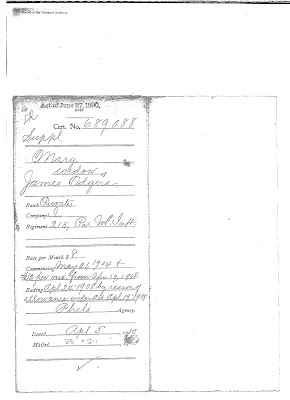 Act of June 27, 1890.
Cert. No. 689,088
Suppl
Mary
widow
James Odgers
Rank Private
Company
Regiment 215, Pa Vol. Inft
Rate per Month $8
Commencing May 21, 1904 +
$12 per mo. from Apr 19, 1908
Ending Apl 20 1908 by reason of
allowance under Act Apl 19 1908
Phila Agency.
Issued Apl 5
Mailed